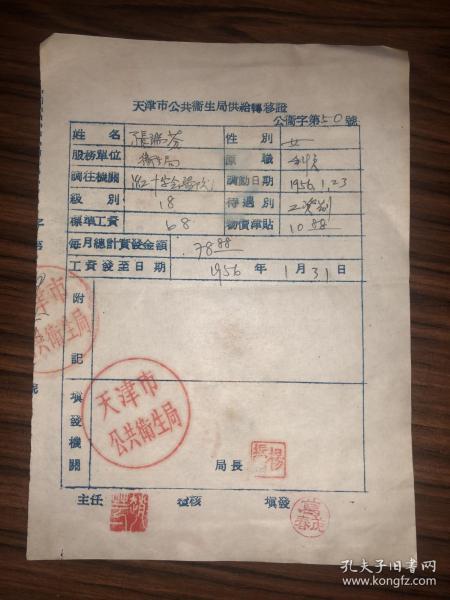 天津市公共衞生局供給轉移證
公衞字第50號
姓名 張瑞芬 性別 女
服務單位 衞生局 原職
調往機關 調動日期 1956.1.23
級別 18 待遇別 工資制
標準工資 68 物價津貼 10.88
每月總計實發金額 78.88
工資發至日期 1956年1月31日
附記
填發機關
天津市
公共衞生局
局長
主任 審核 填發
孔夫子旧书网
www.kongfz.com